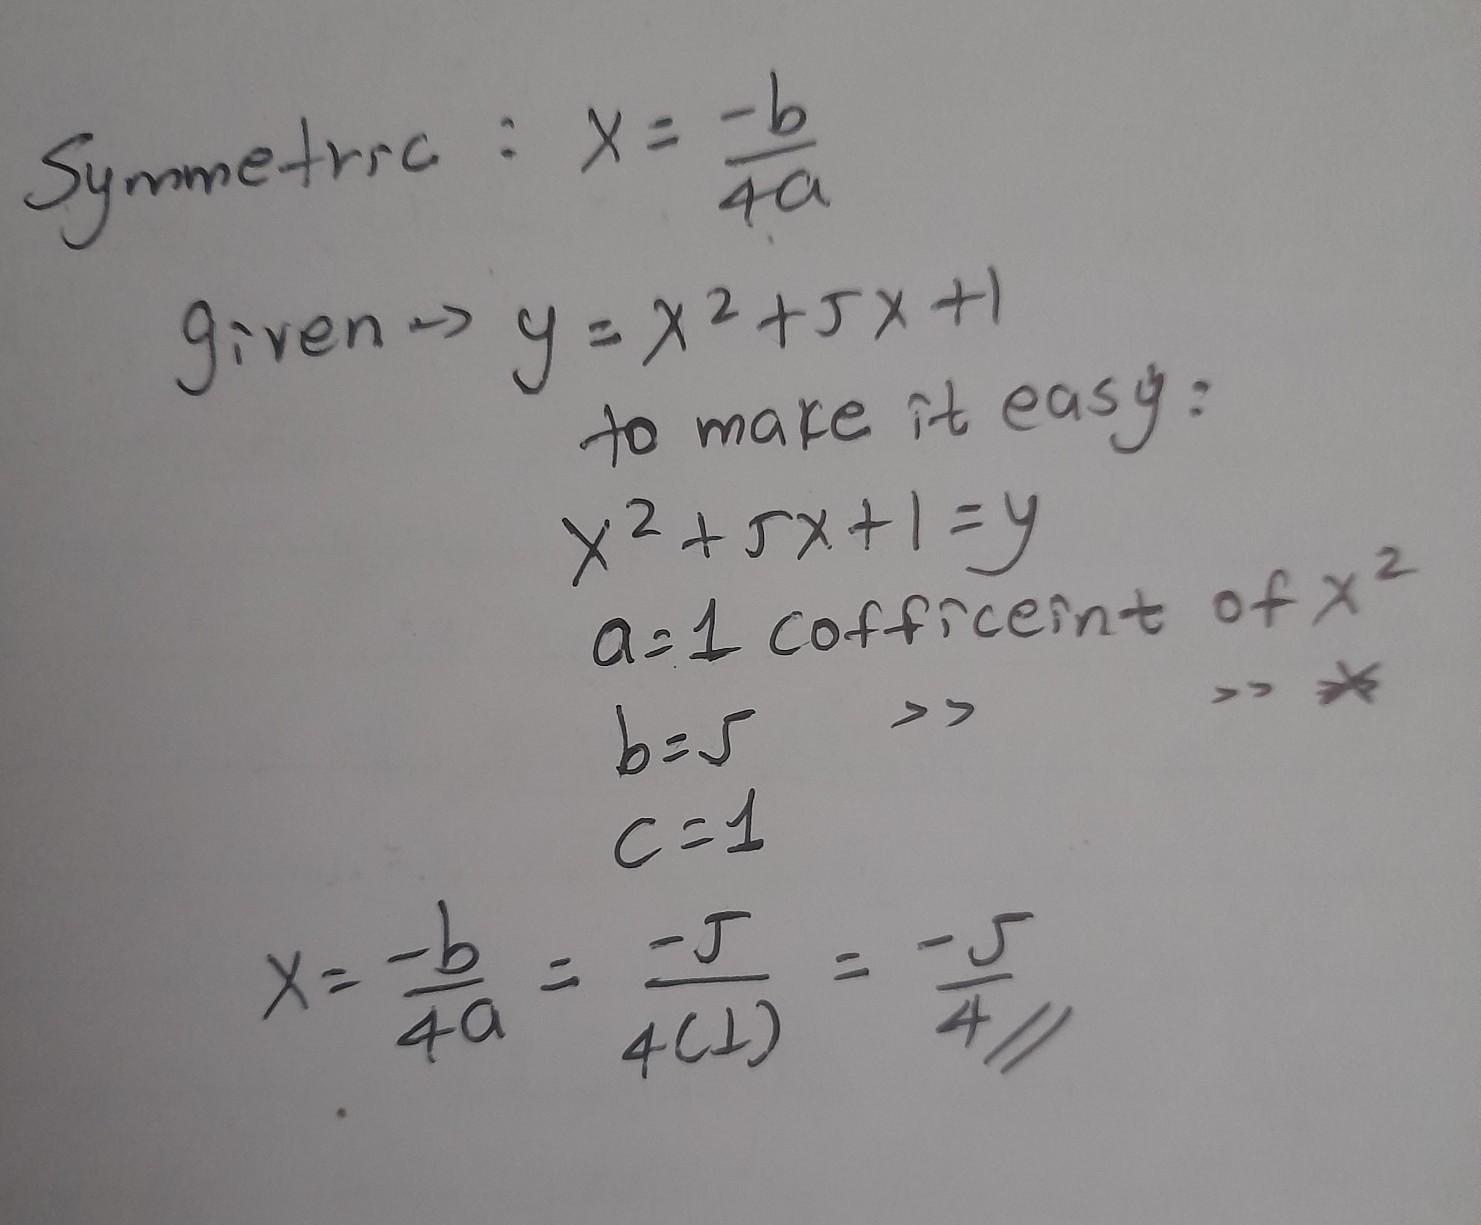 Symmetric : x = -b/4a
given → y = x² + 5x + 1
to make it easy:
x² + 5x + 1 = y
a = 1 cofficeint of x²
b = 5 >> >> x
c = 1
x = -b/4a = -5/4(1) = -5/4 //